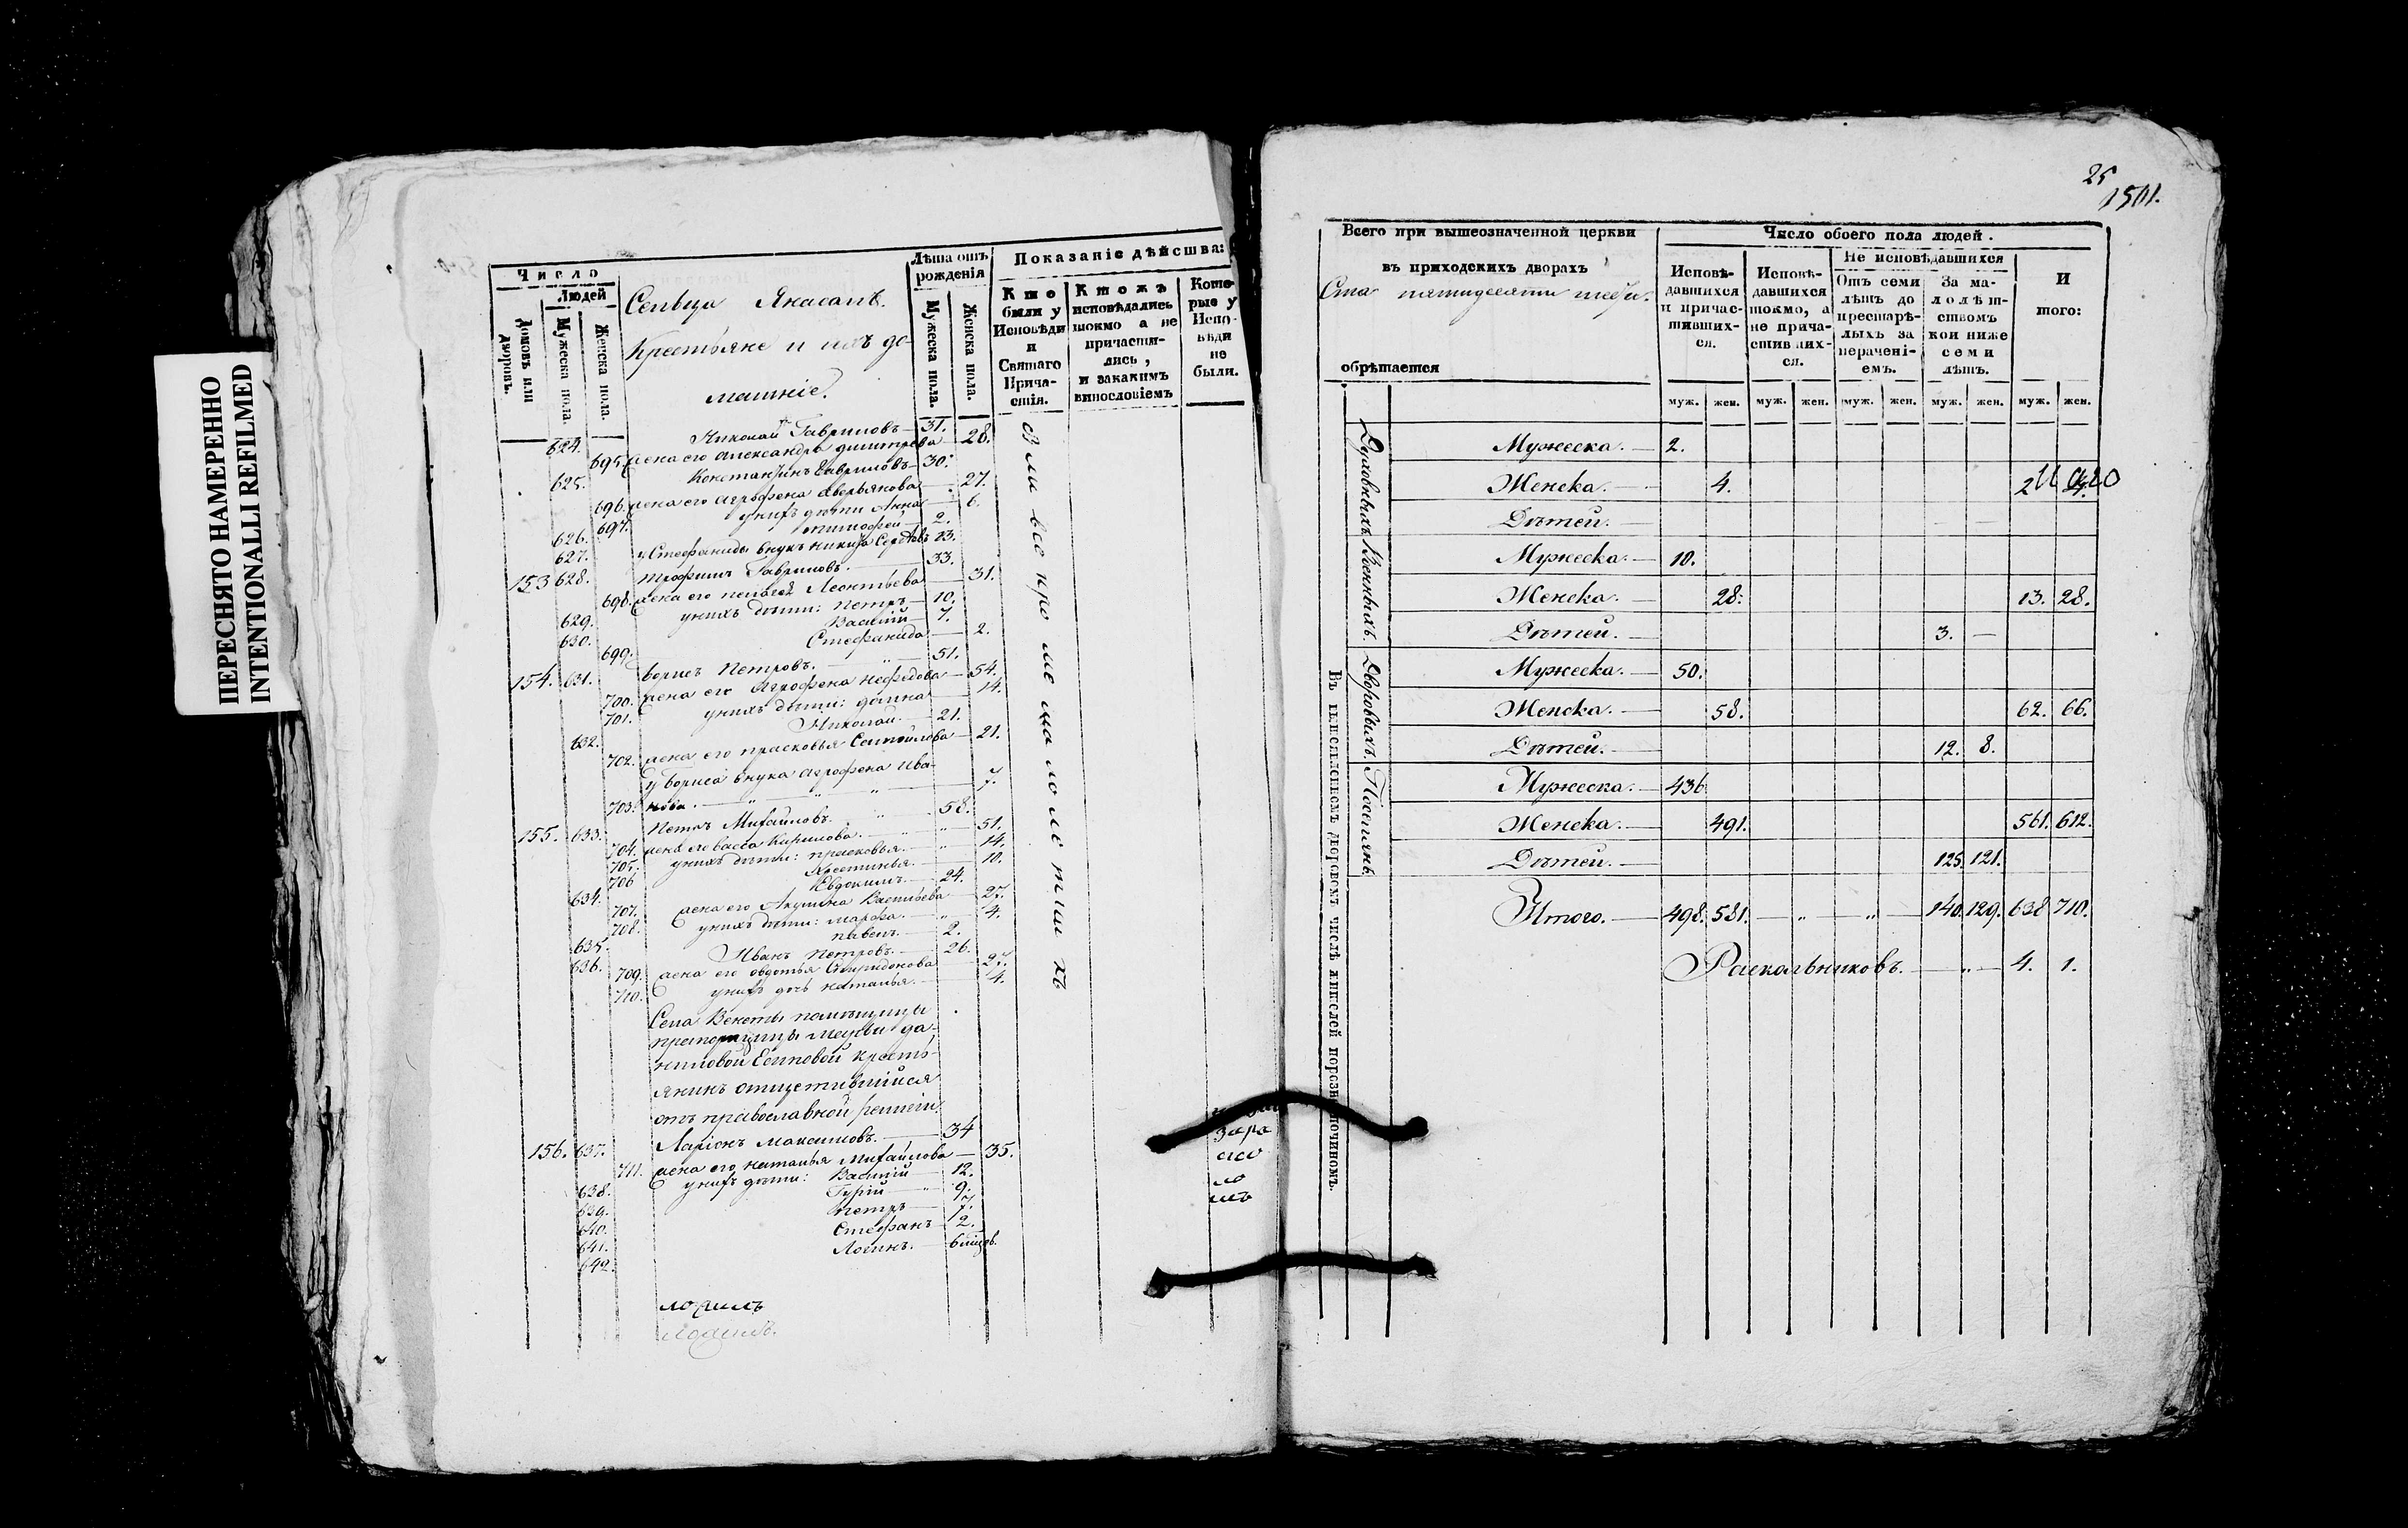 ПЕРЕСНЯТО НАМЕРЕННО
INTENTIONALLI REFILMED
Число
Людей
Домовъ или дворовъ.
Мужеска пола.
Женска пола.
Сельца
Крестьяне и ихъ до-
машніе.
Лѣта отъ рожденія
Мужеска пола.
Женска пола.
Показаніе дѣйства:
Кто были у Исповѣди и Святаго Причастія.
Ктожъ исповѣдались токмо а не причастились, и закакимъ винословіемъ
Которые у Исповѣди не были.
624. Николай Гавриловъ — 31.
695. жена его Александра Димитрева — 28.
625. Константинъ Гавриловъ — 30.
696. жена его Агрофена Аверьянова — 27.
697. у нихъ дѣти Анна — 6.
626. Тимофей — 2.
627. у Стефаниды внукъ Никита 13.
153 628. Трофимъ Гавриловъ. — 33.
698. жена его Пелагея Леонтьева — 31.
629. у нихъ дѣти: Петръ — 10.
630. Василій — 7.
699. Стефанида — 2.
154. 631. Борисъ Петровъ. — 51.
700. жена его Агрофена Нефедова — 54.
701. у нихъ дѣти: Домна — 14.
632. Николай. — 21.
702. жена его Прасковья Самойлова — 21.
у Бориса внука Агрофена Ива-
703. нова. — 7.
155. 633. Петръ Михайловъ. 58.
704. жена его Васса Кирилова. — 51.
705. у нихъ дѣти: Прасковья. — 14.
706 Хрестинья. — 10.
634. Евдокимъ. — 24.
707. жена его Акулина Васильева — 27.
708. у нихъ дѣти: Марфа. — 4.
635. Павелъ. — 2.
636. Иванъ Петровъ. — 26.
709. жена его Овдотья Спиридонова 27.
710. у нихъ дочь Наталья. — 4.
Села помѣщицы
прапорщицы да-
ниловой Есиповой кресть-
янинъ отщетившійся
отъ православной религіи
156. 637. Ларіонъ Максимовъ. — 34
711. жена его Наталья Михайлова — 35.
638. у нихъ дѣти: Василій — 12.
639. Гурій — 9.
640. Петръ — 7.
641. Стефанъ — 2.
642. Логинъ. — 6 мѣсцов.
всѣ кромѣ малолетныхъ
25
1501.
Всего при вышеозначенной церкви
въ приходскихъ дворахъ
Ста пятидесяти шести.
обрѣтается
Число обоего пола людей.
Исповѣдавшихся и причастившихся.
Исповѣдавшихся токмо, а не причастившихся.
Не исповѣдавшихся
Отъ семи лѣтъ до престарѣлыхъ за нерачені-емъ.
За малолѣтствомъ кои ниже семи лѣтъ.
И того:
муж. жен. муж. жен. муж. жен. муж. жен. муж. жен.
Духовныхъ
Мужеска. — 2.
Женска. — 4. 2 4.
Дѣтей. —
Военныхъ.
Мужеска. — 10.
Женска. — 28. 13. 28.
Дѣтей. — 3. —
Дворовыхъ.
Мужеска. — 50.
Женска. — 58. 62. 66.
Дѣтей. — 12. 8.
Поселянъ.
Мужеска. — 436.
Женска. — 491. 561. 612.
Дѣтей. — 125. 121.
Итого. — 498. 581. — „ — „ — 140. 129. 638 710.
Раскольниковъ. — „ — 4. 1.